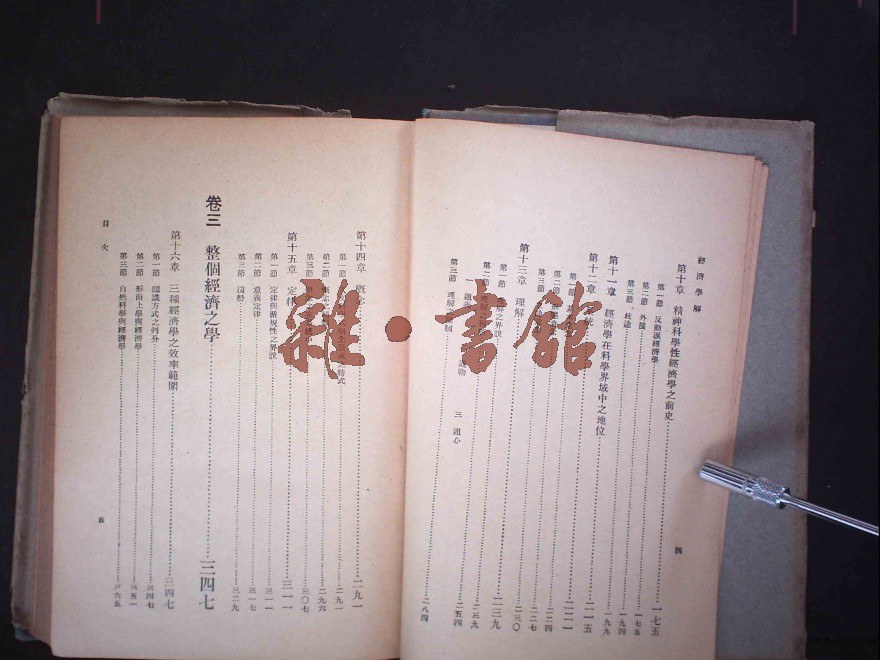 經濟學解
第十章 精神科學性經濟學之前史 一七五
第一節 反動派經濟學 一七五
第二節 外援 一九四
第三節 歧途 一九九
第十一章 經濟學在科學界域中之地位 二一五
第十二章
第一節
第二節 二二四
第三節 二二七
第十三章 理解 二三〇
第一節 理解之界說
第二節 二三九
第三節 理解 二五四
三 通心
二八四
四
第十四章 二九一
第一節 二九一
第二節 二九六
第三節 三〇七
第十五章 定律 三一一
第一節 定律與循規性之界說 三一一
第二節 意義定律 三一七
第三節 趨勢 三二九
卷三 整個經濟之學 三四七
第十六章 三種經濟學之效率範圍 三四七
第一節 認識方式之列分 三四七
第二節 形而上學與經濟學 三五一
第三節 自然科學與經濟學 三六五
目次
五
雜·書館